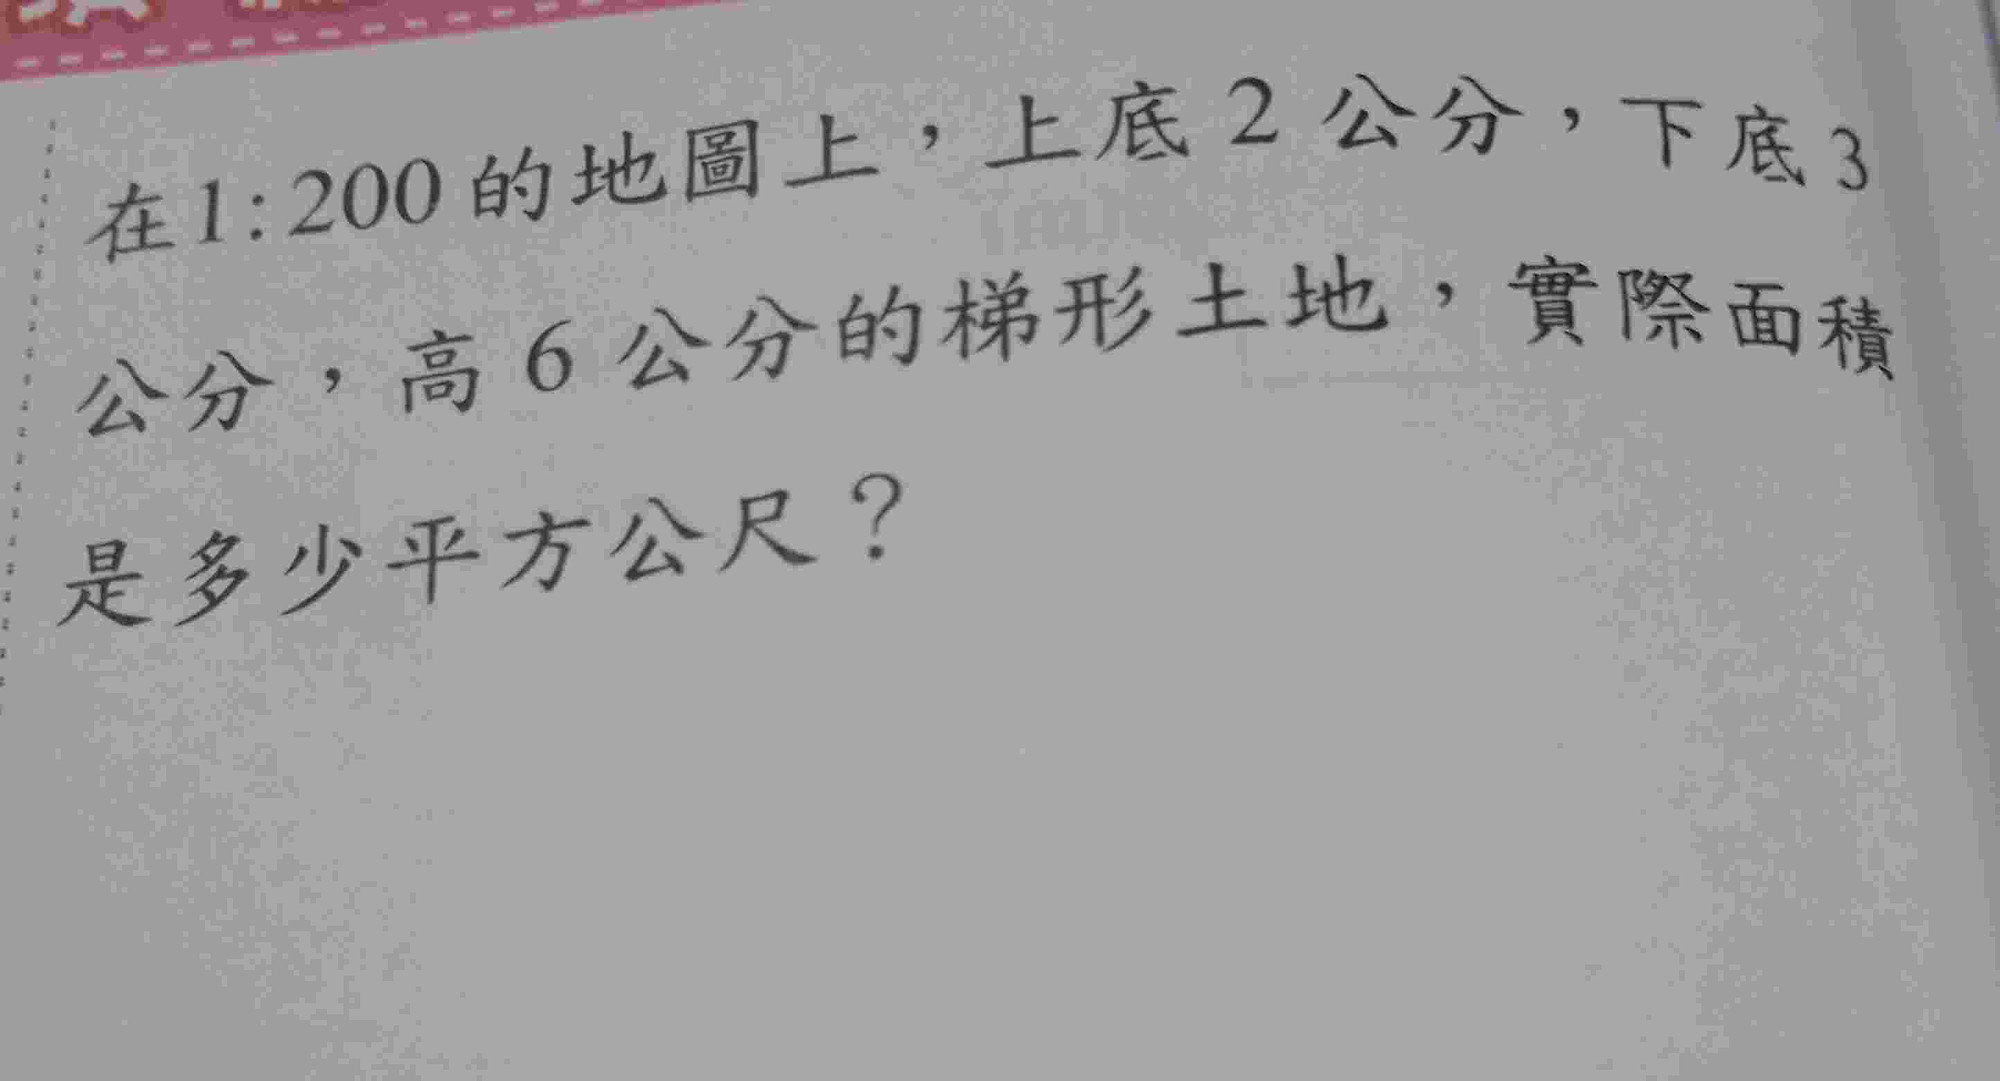 在1:200的地圖上，上底2公分，下底3
公分，高6公分的梯形土地，實際面積
是多少平方公尺？